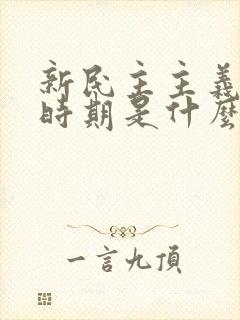 新民主主義
時期是什麼
一言九頂